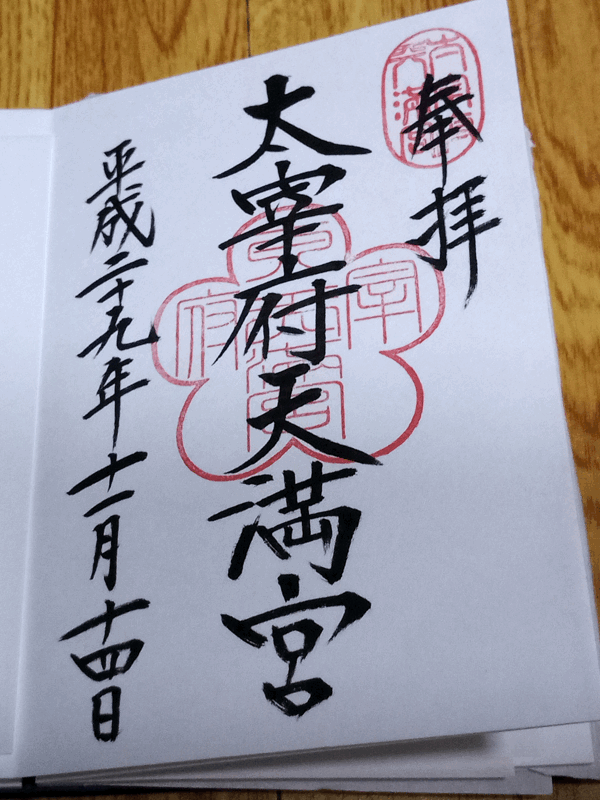 奉拝
太宰府天満宮
平成二十九年十一月十四日